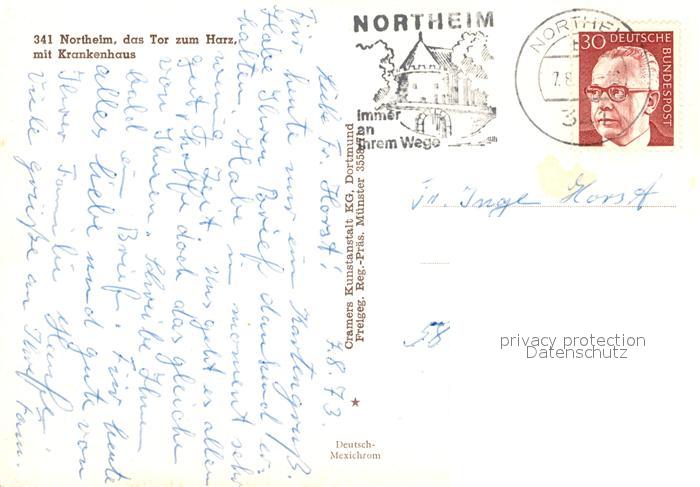 341 Northeim, das Tor zum Harz,
mit Krankenhaus
NORTHEIM
Immer
an
Ihrem Wege
NORTHEIM
7.8.
3
30 DEUTSCHE
BUNDESPOST
Cramers Kunstanstalt KG, Dortmund
Freigeg. Reg.-Präs. Münster 3558/
Deutsch-
Mexichrom
Fr. Inge Horst
58
privacy protection
Datenschutz
7.8.73.
Liebe Fr. Horst!
Für heute nur ein Kartengruß.
Habe Ihren Brief dankend er-
halten. Habe im moment sehr
wenig Zeit. Uns geht es allen
gut. Hoffe doch das gleiche
von Ihnen. Schreibe Ihnen
bald ein Brief. Für heute
alles liebe und gute von
Ihrer Familie
Viele grüße an Ihre Mama.